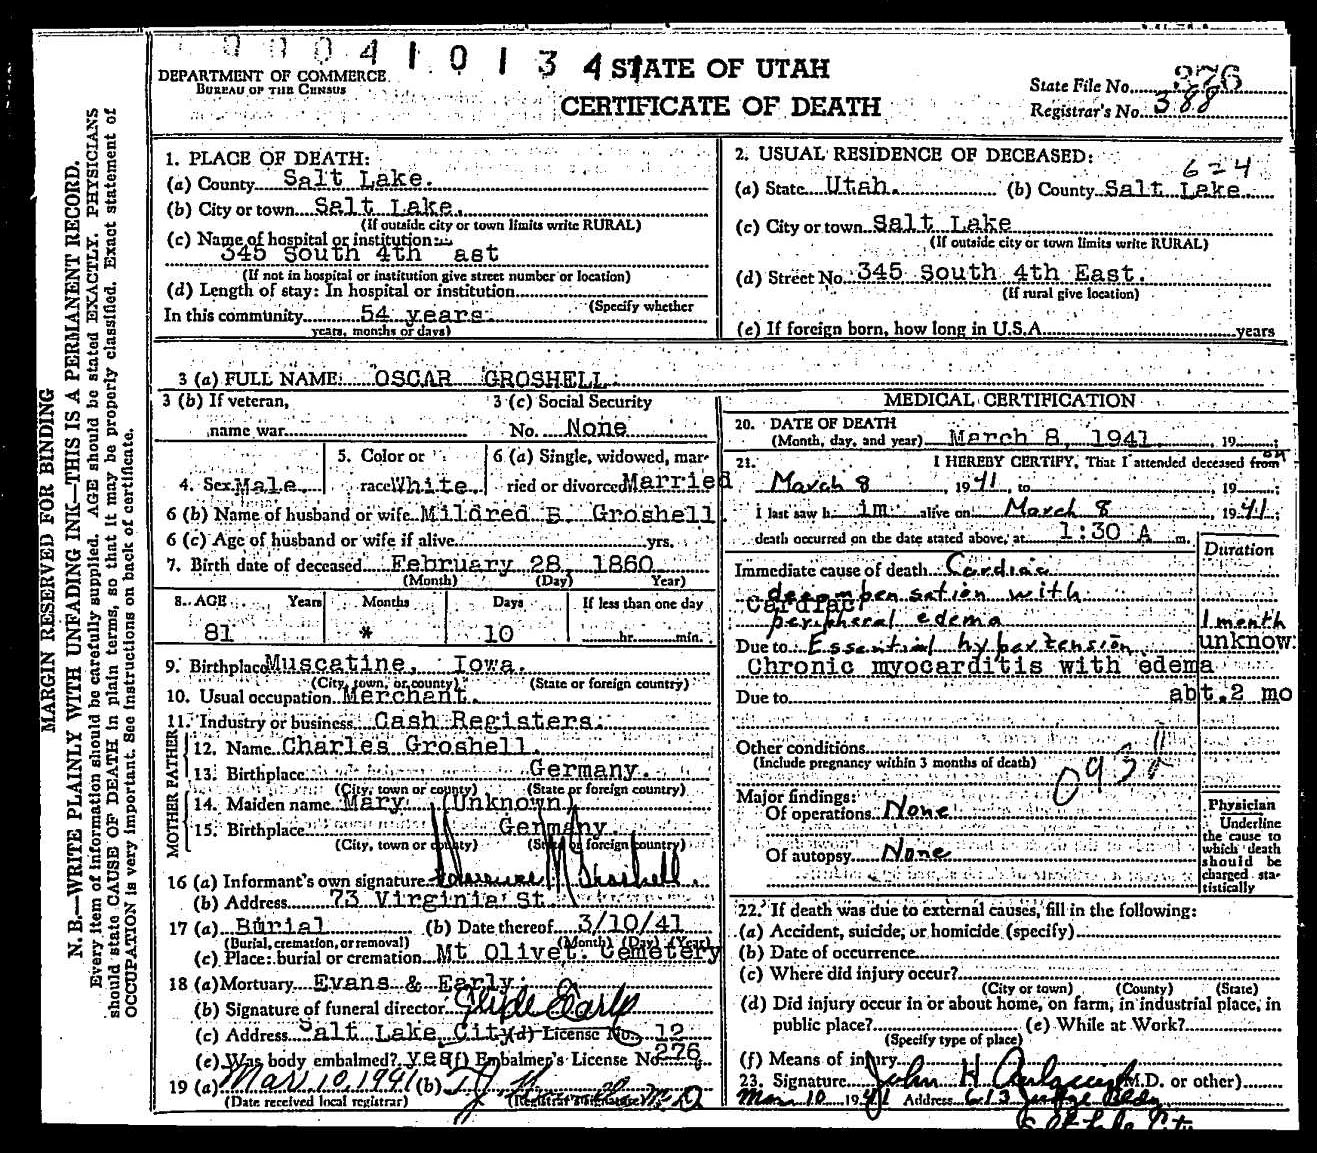 0 0 0 4 1 0 1 3 4 1 STATE OF UTAH
DEPARTMENT OF COMMERCE
BUREAU OF THE CENSUS
CERTIFICATE OF DEATH
State File No. 376
Registrar's No. 388
MARGIN RESERVED FOR BINDING
N. B.—WRITE PLAINLY WITH UNFADING INK—THIS IS A PERMANENT RECORD.
Every item of information should be carefully supplied. AGE should be stated EXACTLY. PHYSICIANS
should state CAUSE OF DEATH in plain terms, so that it may be properly classified. Exact statement of
OCCUPATION is very important. See instructions on back of certificate.
1. PLACE OF DEATH:
(a) County Salt Lake.
(b) City or town Salt Lake.
(If outside city or town limits write RURAL)
(c) Name of hospital or institution:
345 South 4th ast
(If not in hospital or institution give street number or location)
(d) Length of stay: In hospital or institution
(Specify whether
In this community 54 years.
years, months or days)
2. USUAL RESIDENCE OF DECEASED:
624
(a) State Utah. (b) County Salt Lake
(c) City or town Salt Lake
(If outside city or town limits write RURAL)
(d) Street No. 345 South 4th East.
(If rural give location)
(e) If foreign born, how long in U.S.A. years
3 (a) FULL NAME: OSCAR GROSHELL.
3 (b) If veteran, 3 (c) Social Security
name war No. None
5. Color or 6 (a) Single, widowed, mar-
4. Sex Male. race White. ried or divorced Married
6 (b) Name of husband or wife Mildred B. Groshell.
6 (c) Age of husband or wife if alive yrs.
7. Birth date of deceased February 28, 1860
(Month) (Day) Year)
8. AGE Years Months Days If less than one day
81 * 10 hr. min.
9. Birthplace Muscatine, Iowa.
(City, town, or county) (State or foreign country)
10. Usual occupation Merchant.
11. Industry or business Cash Registers.
FATHER
12. Name Charles Groshell.
13. Birthplace Germany.
(City, town or county) (State or foreign country)
MOTHER
14. Maiden name Mary (Unknown)
15. Birthplace Germany.
(City, town or county) (State or foreign country)
16 (a) Informant's own signature Groshell.
(b) Address 73 Virginia St
17 (a) Burial (b) Date thereof 3/10/41
(Burial, cremation, or removal) (Month) (Day) (Year)
(c) Place: burial or cremation Mt Olivet. Cemetery
18 (a) Mortuary Evans & Early.
(b) Signature of funeral director Clyde Early
(c) Address Salt Lake City (d) License No. 12
(e) Was body embalmed? yes (f) Embalmer's License No. 276
19 (a) Mar 10, 1941 (b) M.D.
(Date received local registrar) (Registrar's signature)
MEDICAL CERTIFICATION
20. DATE OF DEATH
(Month, day, and year) March 8, 1941 , 19 ;
21. I HEREBY CERTIFY, That I attended deceased from on
March 8 1941, to , 19 ;
I last saw h im alive on March 8 , 1941;
death occurred on the date stated above, at 1:30 A m.
Duration
Immediate cause of death Cardiac
decompensation with
Cardiac
peripheral edema 1 month
Due to Essential hypertension unknow.
Chronic myocarditis with edema
Due to abt.2 mo
Other conditions
(Include pregnancy within 3 months of death)
Major findings:
Of operations None
Of autopsy None
Physician
Underline
the cause to
which death
should be
charged sta-
tistically
22. If death was due to external causes, fill in the following:
(a) Accident, suicide, or homicide (specify)
(b) Date of occurrence
(c) Where did injury occur?
(City or town) (County) (State)
(d) Did injury occur in or about home, on farm, in industrial place, in
public place? (e) While at Work?
(Specify type of place)
(f) Means of injury
23. Signature John H (M.D. or other)
Mar 10 1941 Address 613 Judge Bldg